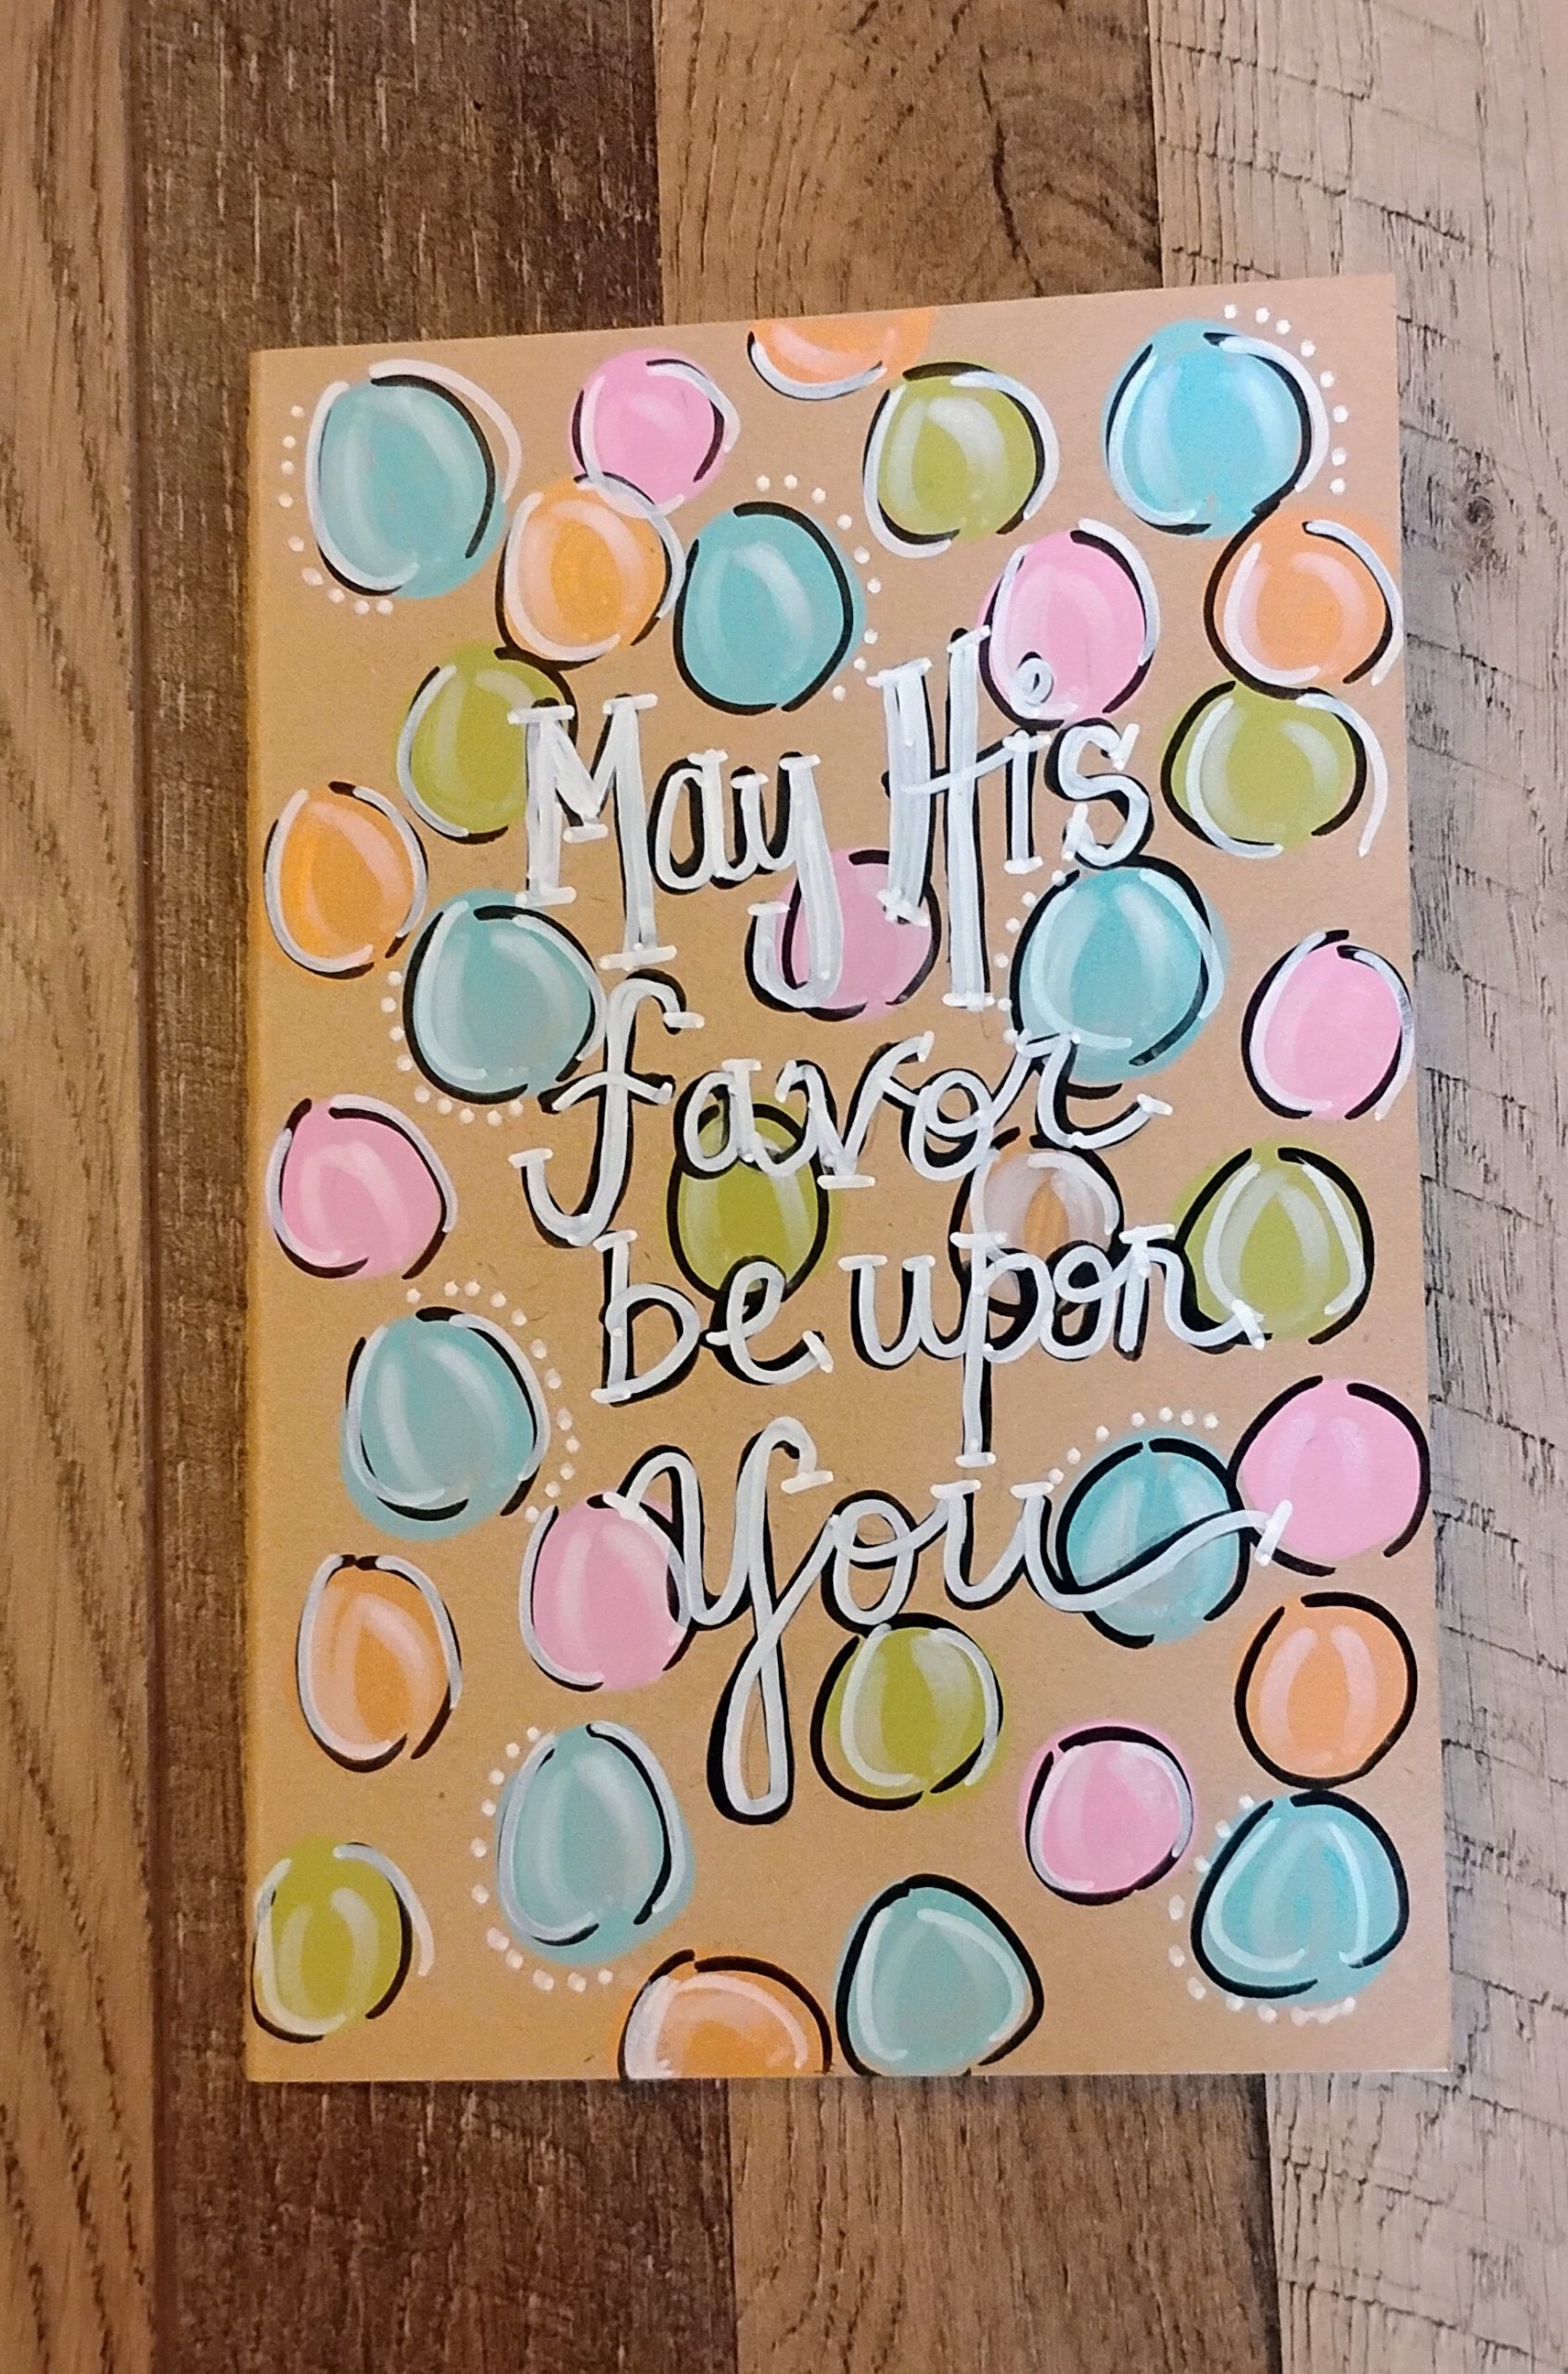 May His
favor
be upon
you